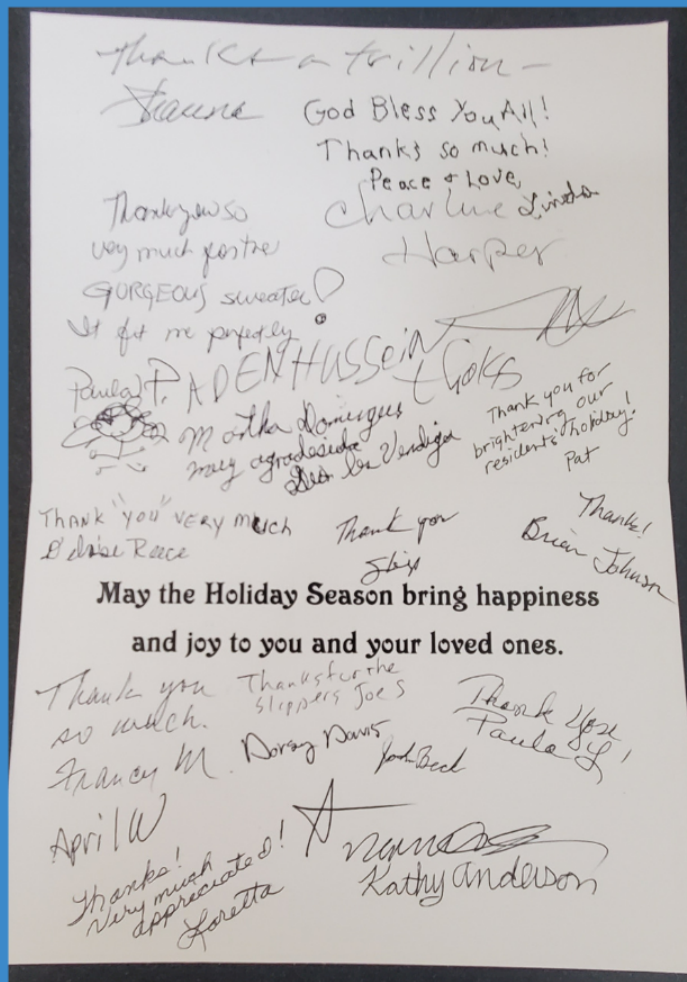 Thanks a trillion -
God Bless You All!
Thanks so much!
Peace + Love,
Charline Linda
Harper
Thank you so
very much for the
GORGEOUS sweater!
It fit me perfectly
Paula P.
ADEN HUSSEIN
Martha Domingues
muy agradesida
Dios los Vendiga
Thank you for
brightening our
residents' holiday!
Pat
THANK "YOU" VERY MUCH
Reece
Thank you
Skip
Thanks!
Brian Johnson
May the Holiday Season bring happiness
and joy to you and your loved ones.
Thank you
so much.
Francy M.
Thanks for the
slippers Joe S
Dorsy Davis
Josh Beck
Thank You
Paula Y!
April W
Thanks!
Very much
appreciated!
Loretta
Kathy Anderson